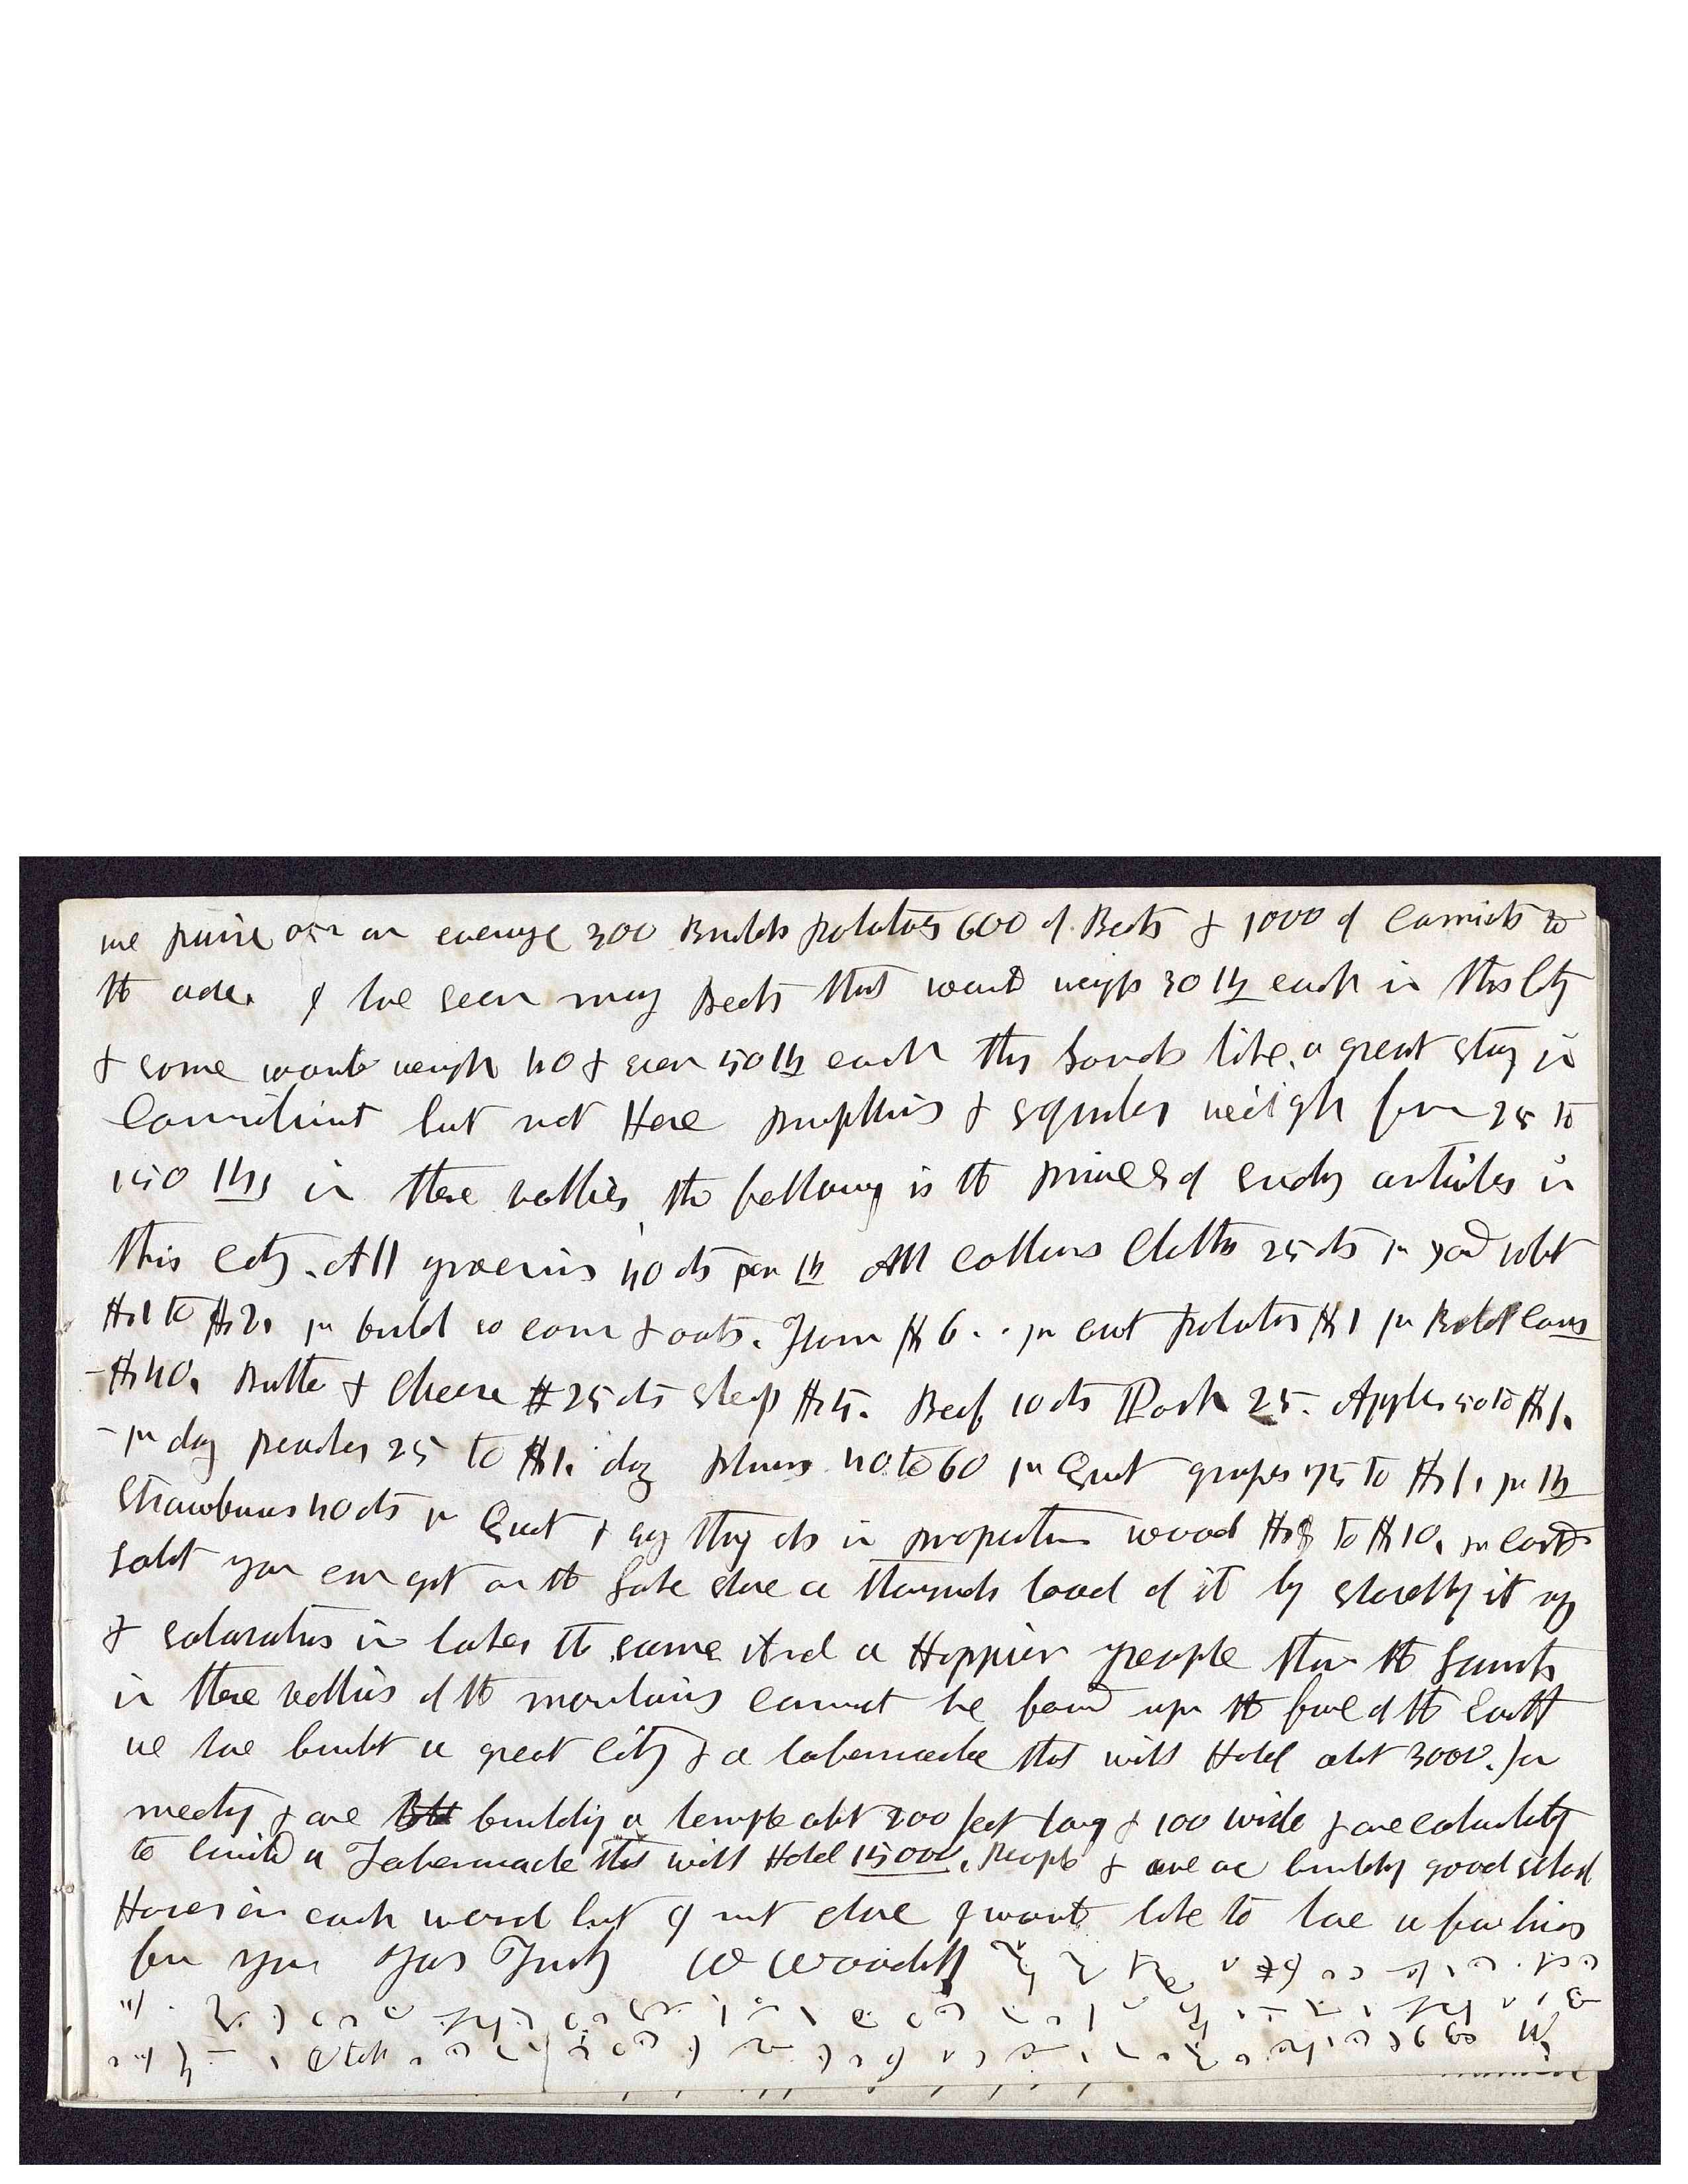 we raise on an average 300 Bushels potatoes 600 of Beets & 1000 of Carriots to
the acre. I have seen many Beets that would weigh 30 lb each in this City
& some would weigh 40 & even 50 lb each this sounds like a great story in
Connecticut but not Here pumpkins & squashes weigh from 25 to
150 lbs, in these vallies the following is the prices of sundry articles in
this City. All groceries 40 cts per lb All cottons Cloths 25 cts pr yard wheat
$1 to $2. pr bushel so corn & oats. Flour $6. pr cwt potatoes $1 pr Bushel Cows
$40. Butter & Cheese 25 cts sheep $5. Beef 10 cts Pork 25. Apples 50 to $1.
pr doz peaches 25 to $1. doz plums 40 to 60 pr Quart grapes 75 to $1, pr lb
Strawburies 40 cts pr Quart & evry thing els in propotion wood $8 to $10. pr Cord
salt you can get on the Lake shore a thousand load of it by shovelling it up
& salaratus in lakes the same And a Happier people than the Saints
in these vallies of the mountains cannot be found upon the face of the Earth
we have built a great City & a tabernacle that will Hold abt 3000. for
meeting & are buildig a temple abt 200 feet long & 100 wide & are calculatig
to build a Tabernacle that will Hold 15000, People & we are building good school
Houses in each ward but I must close I would like to have a few lines
from you Yours Truly W Woodruff